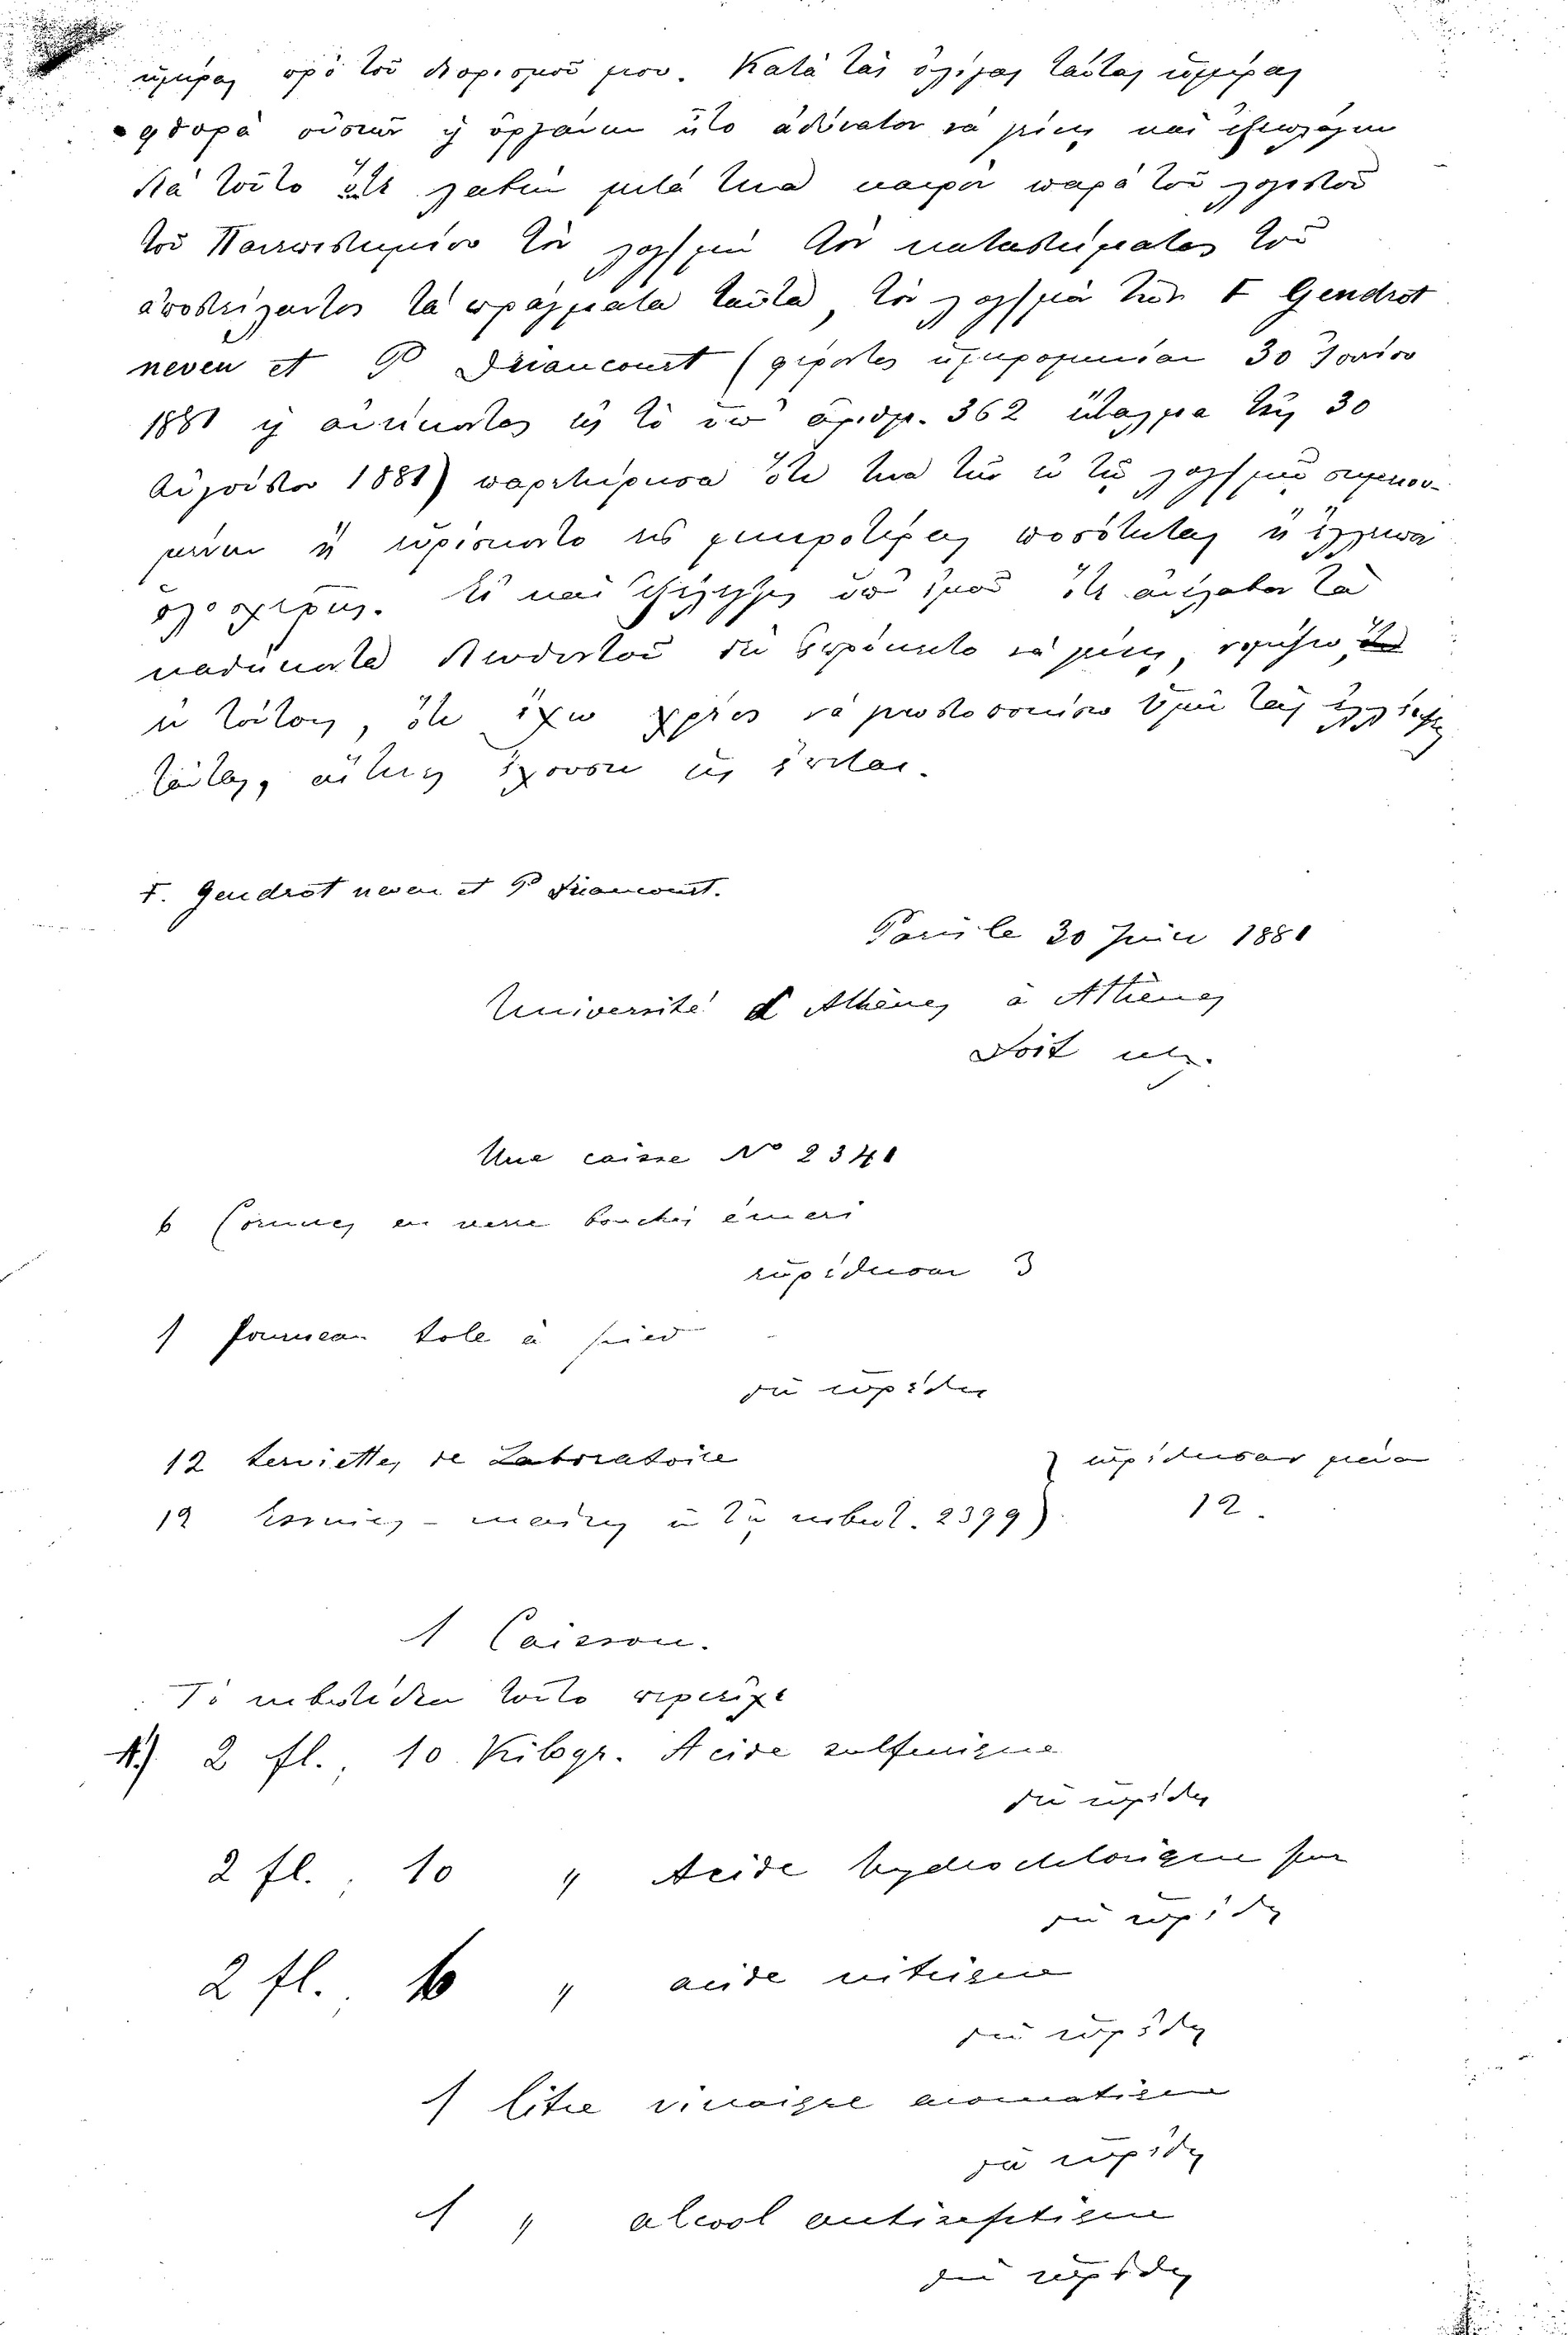 ἡμέρας πρὸ τοῦ διορισμοῦ μου. Κατὰ τὰς ὀλίγας ταύτας ἡμέρας
φθορὰ οὐσιῶν ἢ ὀργάνων ἦτο ἀδύνατον νὰ γίνῃ καὶ
διὰ τοῦτο ὅτε λαβὼν μετά τινα καιρὸν παρὰ τοῦ λογιστοῦ
τοῦ Πανεπιστημίου τὸν λογ/σμὸν τοῦ καταστήματος τοῦ
ἀποστείλαντος τὰ πράγματα ταῦτα, τὸν λογ/σμὸν τῶν F Gendrot
neveu et P Driancourt (φέροντος ἡμερομηνίαν 30 Ἰουνίου
1881 ἢ ἀνήκοντος εἰς τὸ ὑπ' ἀριθμ. 362 ἔνταλμα τῆς 30
Αὐγούστου 1881) παρετήρησα ὅτι τινὰ τῶν ἐν τῷ λογ/σμῷ σημειου-
μένων ἢ εὑρίσκοντο εἰς μικροτέρας ποσότητας ἢ ἔλλειπον
ὁλοσχερῶς. καὶ ὑπ' ἐμοῦ ὅτε ἀνέλαβον τὰ
καθήκοντα Διευθυντοῦ δὲν ἐπρόκειτο νὰ γίνῃ, νομίζω
ἐν τούτοις, ὅτι ἔχω χρέος νὰ γνωστοποιήσω Ὑμῖν τὰς ἐλλείψεις
ταύτας, αἵτινες ἔχουσιν ὡς ἕπεται.
F. Gendrot neveu et P Driancourt.
Paris le 30 Juin 1881
Université d'Athènes à Athènes
Doit etc.
Une caisse No 2341
6 Cornues en verre bouchés émeri
εὑρέθησαν 3
1 fourneau tole à pied
δὲν εὑρέθη
12 serviettes de Laboratoire
εὑρέθησαν μόνον
12 essuies-mains ἐν τῷ κιβωτ. 2399)
12.
1 Caisson.
Τὸ κιβωτίδιον τοῦτο περιεῖχε
1) 2 fl., 10 Kilogr. Acide sulfurique
δὲν εὑρέθη
2 fl., 10 " Acide hydrochlorique pur
δὲν εὑρέθη
2 fl., 10 " acide nitrique
δὲν εὑρέθη
1 litre vinaigre aromatique
δὲν εὑρέθη
1 " alcool antiseptique
δὲν εὑρέθη